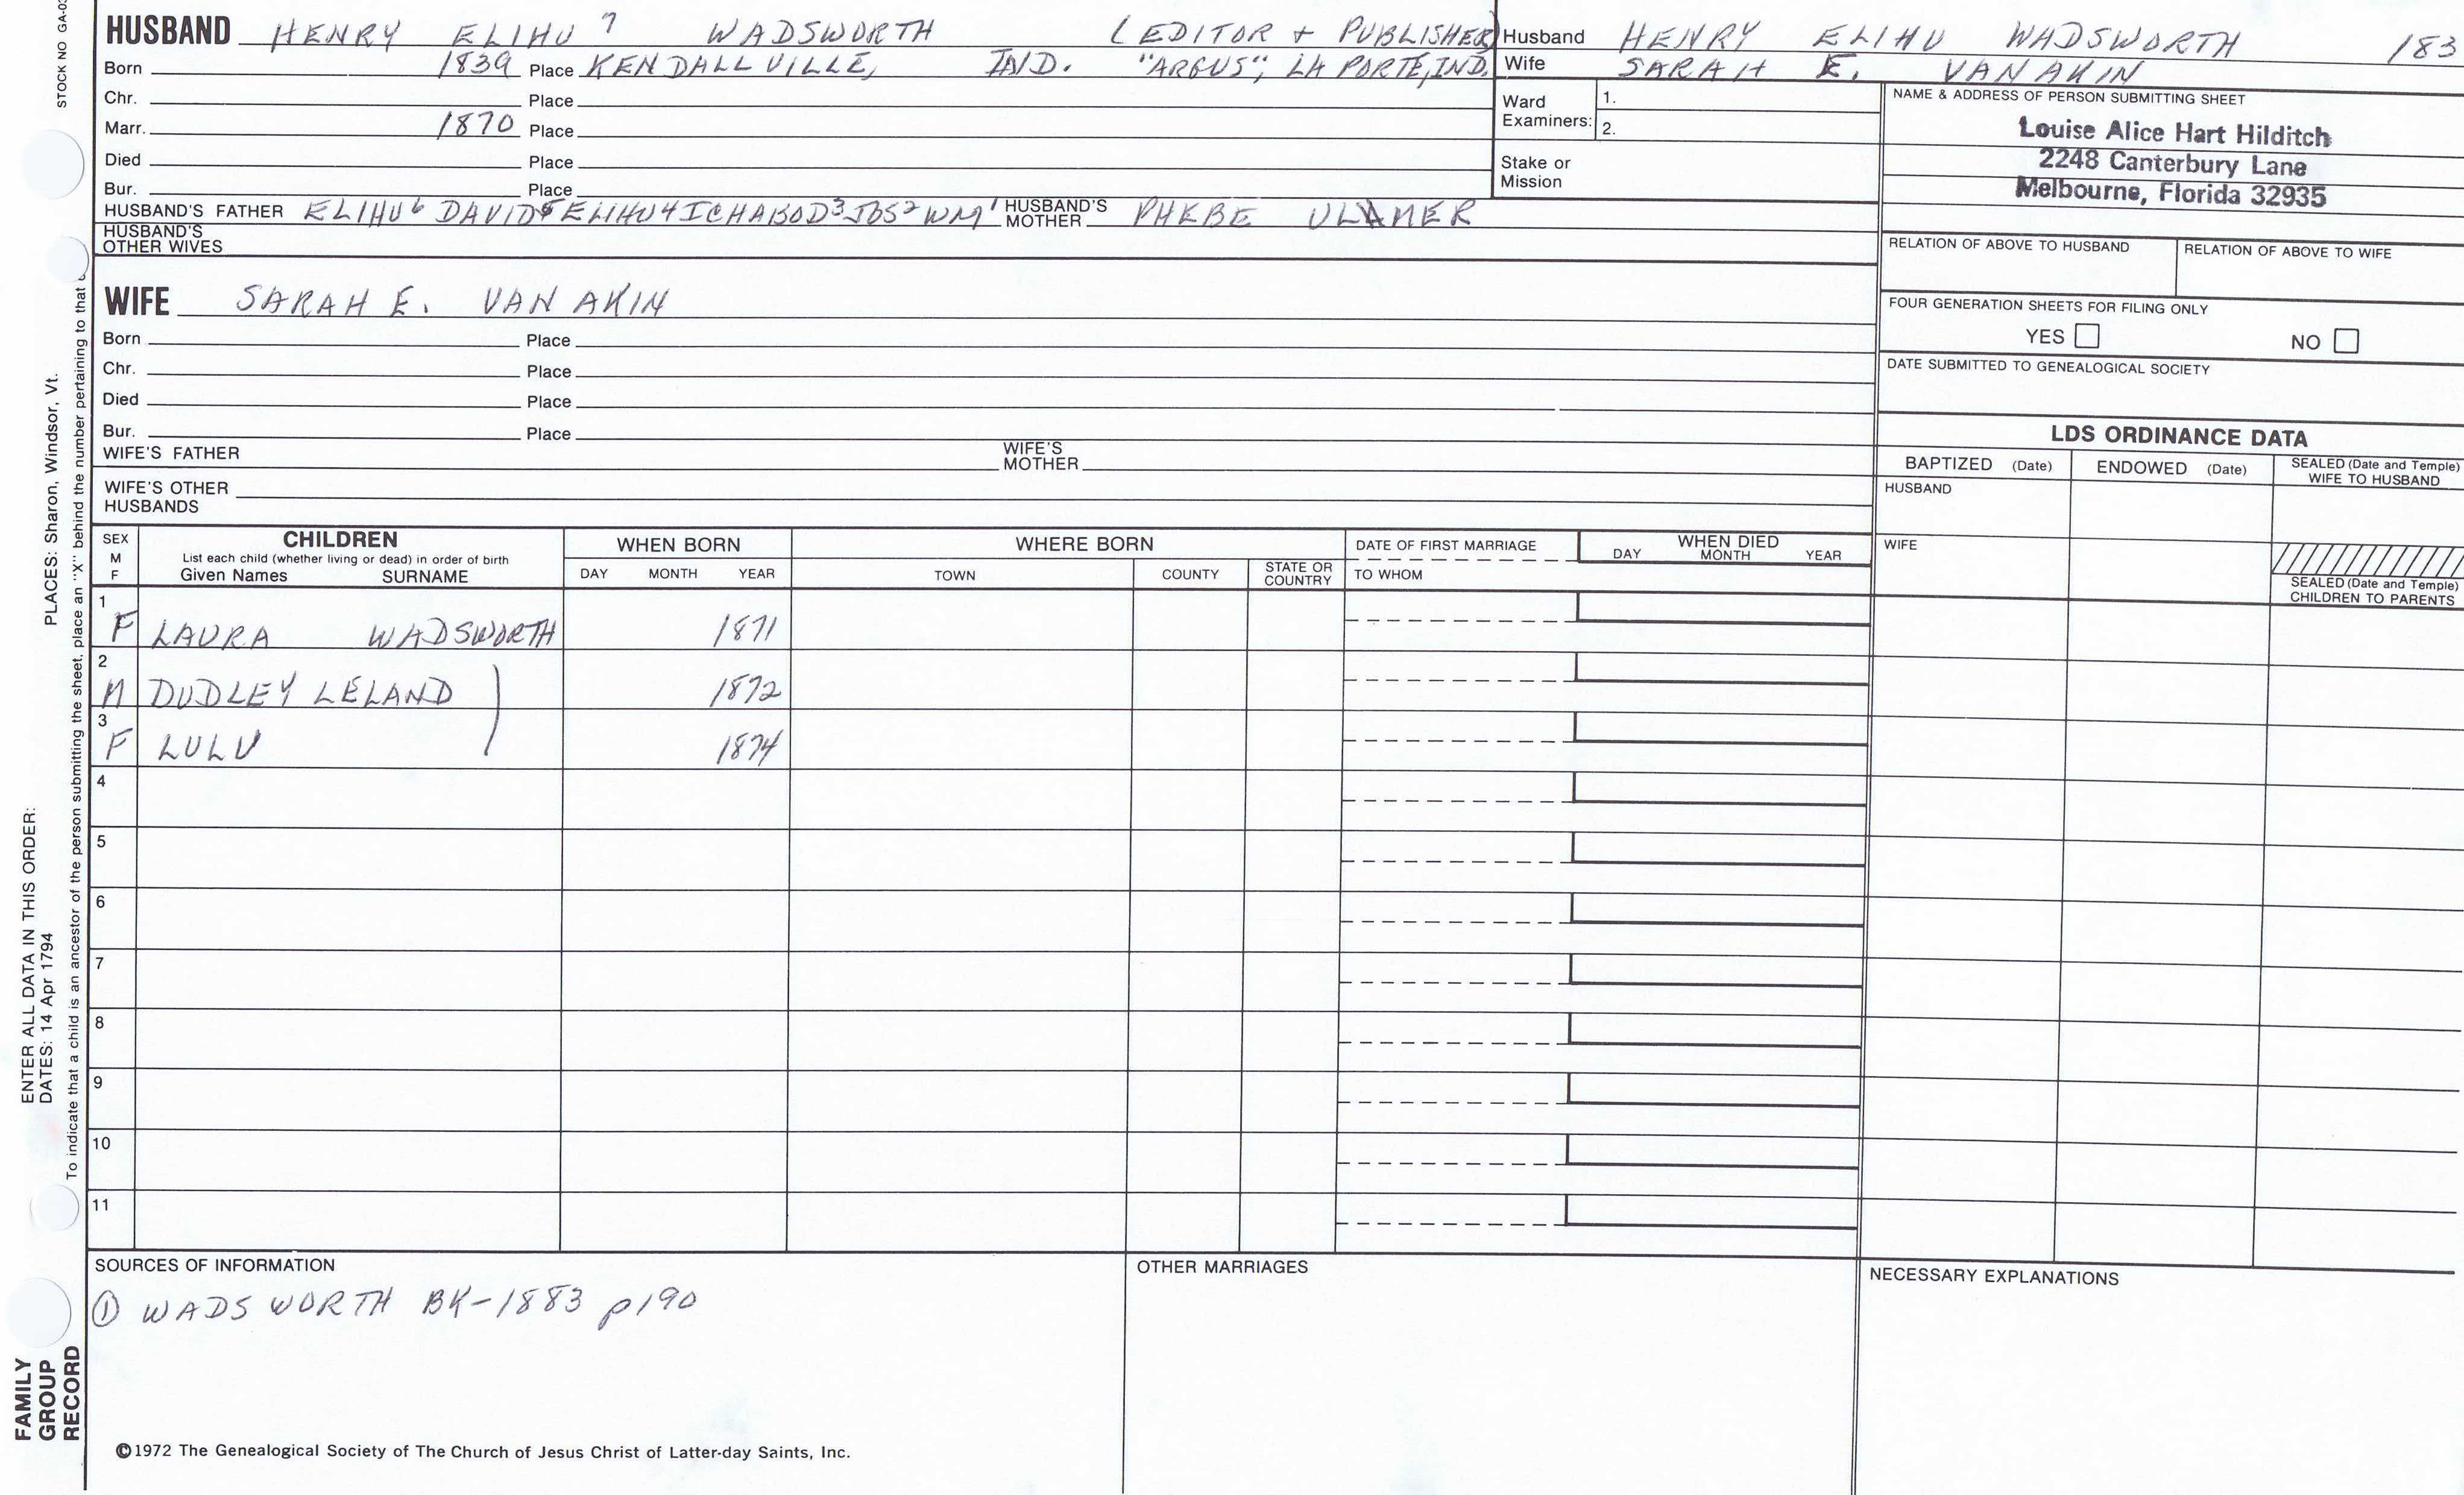 STOCK NO GA-03
HUSBAND HENRY ELIHU 7 WADSWORTH (EDITOR + PUBLISHER)
Born 1839 Place KENDALLVILLE, IND. "ARGUS", LA PORTE, IND.
Chr. Place
Marr. 1870 Place
Died Place
Bur. Place
HUSBAND'S FATHER ELIHU6 DAVID5 ELIHU4 ICHABOD3 JOS2 WM1 HUSBAND'S MOTHER PHEBE ULMER
HUSBAND'S
OTHER WIVES
Husband HENRY ELIHU WADSWORTH 183
Wife SARAH E. VAN AKIN
Ward
Examiners:
1.
2.
Stake or
Mission
NAME & ADDRESS OF PERSON SUBMITTING SHEET
Louise Alice Hart Hilditch
2248 Canterbury Lane
Melbourne, Florida 32935
RELATION OF ABOVE TO HUSBAND RELATION OF ABOVE TO WIFE
FOUR GENERATION SHEETS FOR FILING ONLY
YES NO
DATE SUBMITTED TO GENEALOGICAL SOCIETY
WIFE SARAH E. VAN AKIN
Born Place
Chr. Place
Died Place
Bur. Place
WIFE'S FATHER WIFE'S MOTHER
WIFE'S OTHER
HUSBANDS
LDS ORDINANCE DATA
BAPTIZED (Date) ENDOWED (Date) SEALED (Date and Temple)
WIFE TO HUSBAND
HUSBAND
WIFE
SEALED (Date and Temple)
CHILDREN TO PARENTS
SEX
M
F
CHILDREN
List each child (whether living or dead) in order of birth
Given Names SURNAME
WHEN BORN
DAY MONTH YEAR
WHERE BORN
TOWN COUNTY STATE OR COUNTRY
DATE OF FIRST MARRIAGE
TO WHOM
WHEN DIED
DAY MONTH YEAR
1 F LAURA WADSWORTH 1871
2 M DUDLEY LELAND ) 1872
3 F LULU 1874
4
5
6
7
8
9
10
11
SOURCES OF INFORMATION
① WADSWORTH BK-1883 p190
OTHER MARRIAGES
NECESSARY EXPLANATIONS
©1972 The Genealogical Society of The Church of Jesus Christ of Latter-day Saints, Inc.
PLACES: Sharon, Windsor, Vt.
To indicate that a child is an ancestor of the person submitting the sheet, place an "X" behind the number pertaining to that
ENTER ALL DATA IN THIS ORDER:
DATES: 14 Apr 1794
FAMILY
GROUP
RECORD